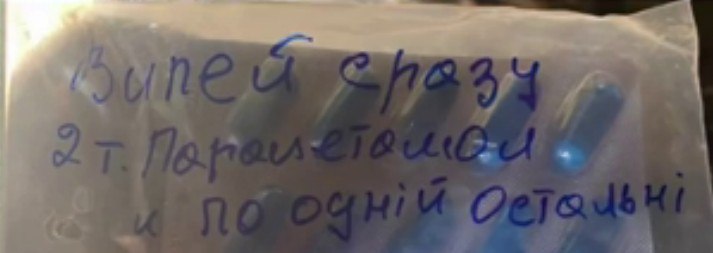 Випей сразу
2 т. Парацетамол
и по одній остальні